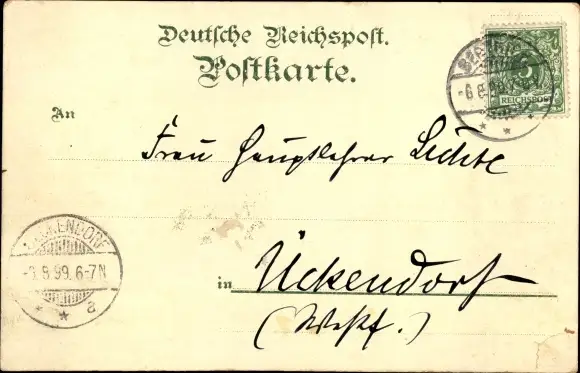 Deutsche Reichspost.
Postkarte.
5
REICHSPOST
An
Frau Hauptlehrer Lichte
ÜCKENDORF
8.99.6-7N
a
in Ückendorf
(Westf.)